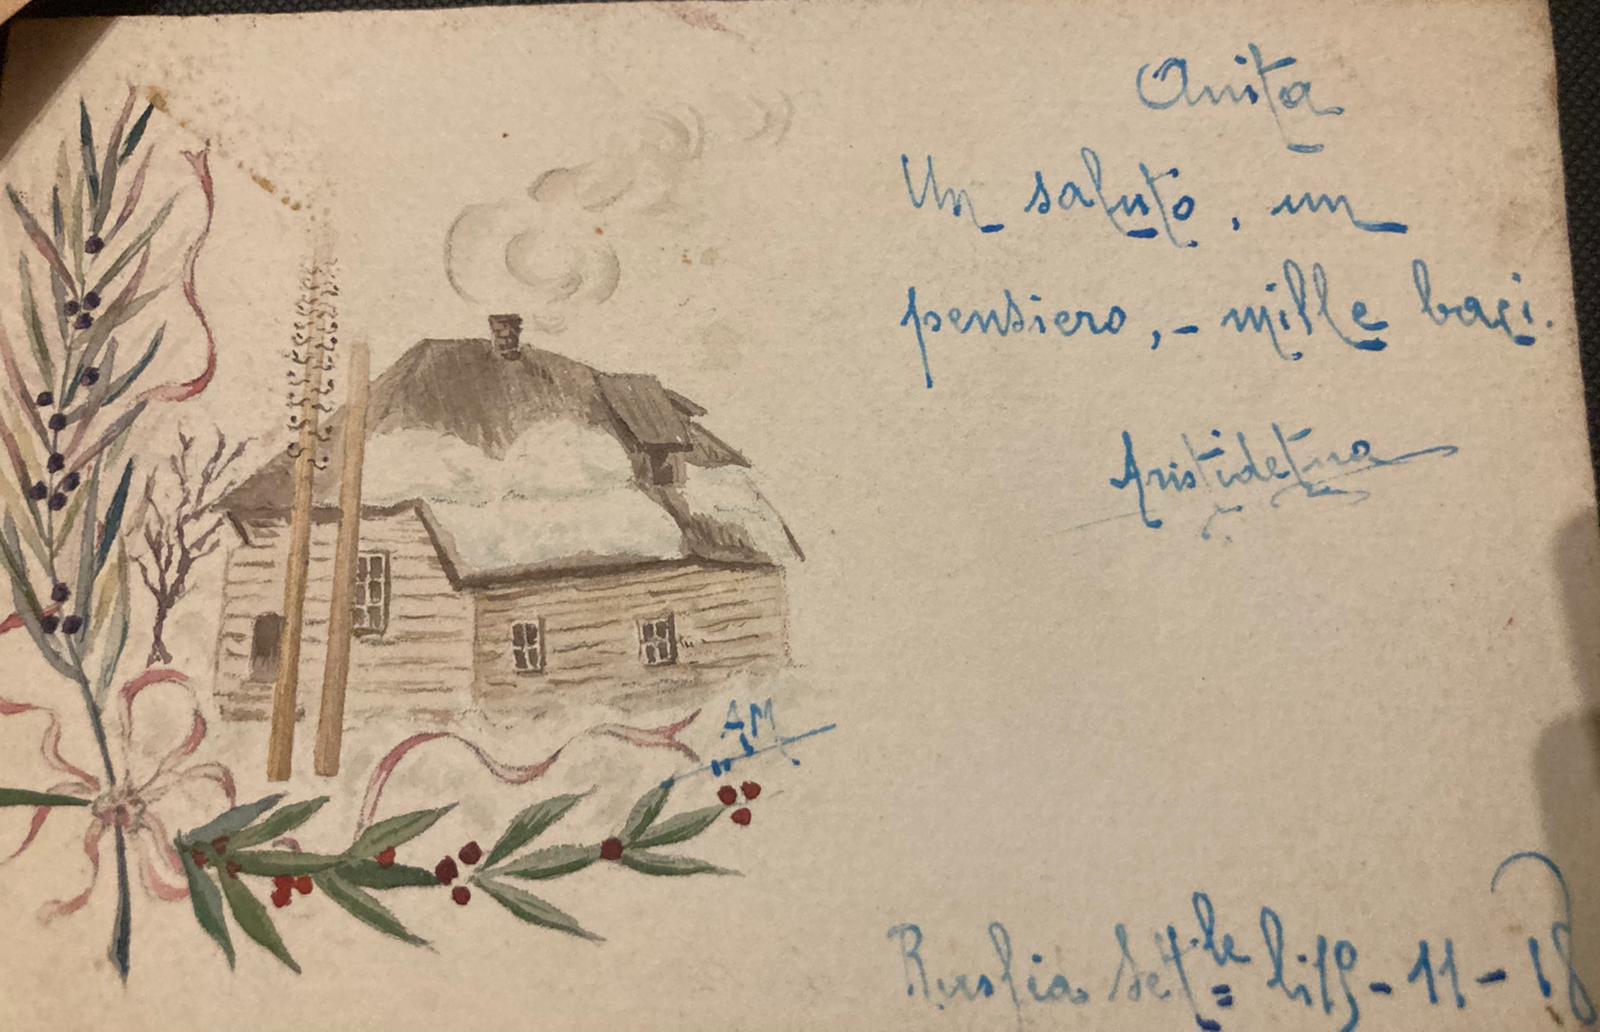 Anita
Un saluto, un
pensiero, - mille baci.
Aristidetuo
AM
Russia Set.le li 19 - 11 - 18